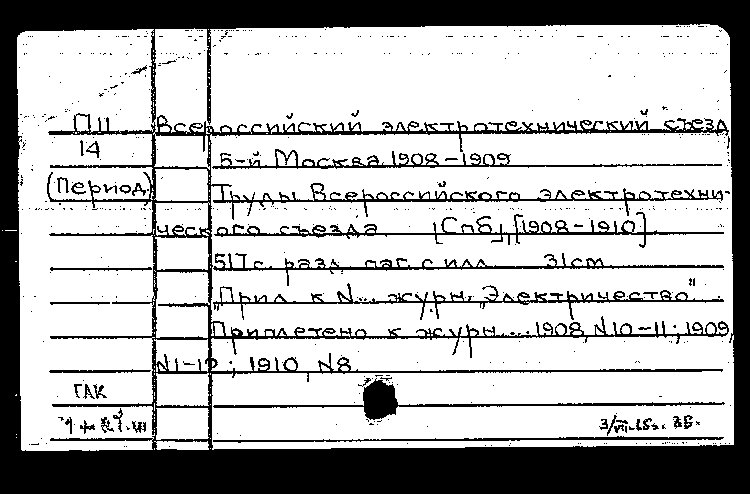 П11 Всероссийский электротехнический съезд
14 5-й Москва 1908-1909
(Период) Труды Всероссийского электротехни-
ческого съезда. [Спб], [1908-1910]
517с. разд. паг. с илл. 31см
"Прил. к N... журн. "Электричество".
Приплетено к журн... 1908, N10-11; 1909,
N1-12; 1910, N8.
ГАК